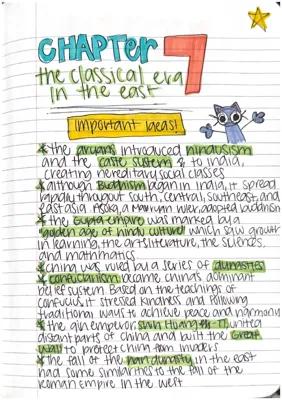 CHAPTER 7
the classical era
in the east
important ideas!
*the aryans introduced hinduism
and the caste system & to india,
creating hereditary social classes
*although Buddhism began in india, it spread
rapidly throughout south, central, southeast, and
east asia. Asoka, a mauryan ruler, adopted buddhism
*the Gupta empire was marked by a
golden age of hindu culture which saw growth
in learning, the arts, literature, the sciences,
and mathmatics
*china was ruled by a series of dynasties
*confucianism became china's dominant
belief system. Based on the teachings of
confucius it stressed kindness and following
traditional ways to achieve peace and harmony
*the qin emperor, united
distant parts of china and built the Great
Wall to protect china from invaders
*the fall of the han dynasty in the east
had some similarities to the fall of the
roman empire in the west